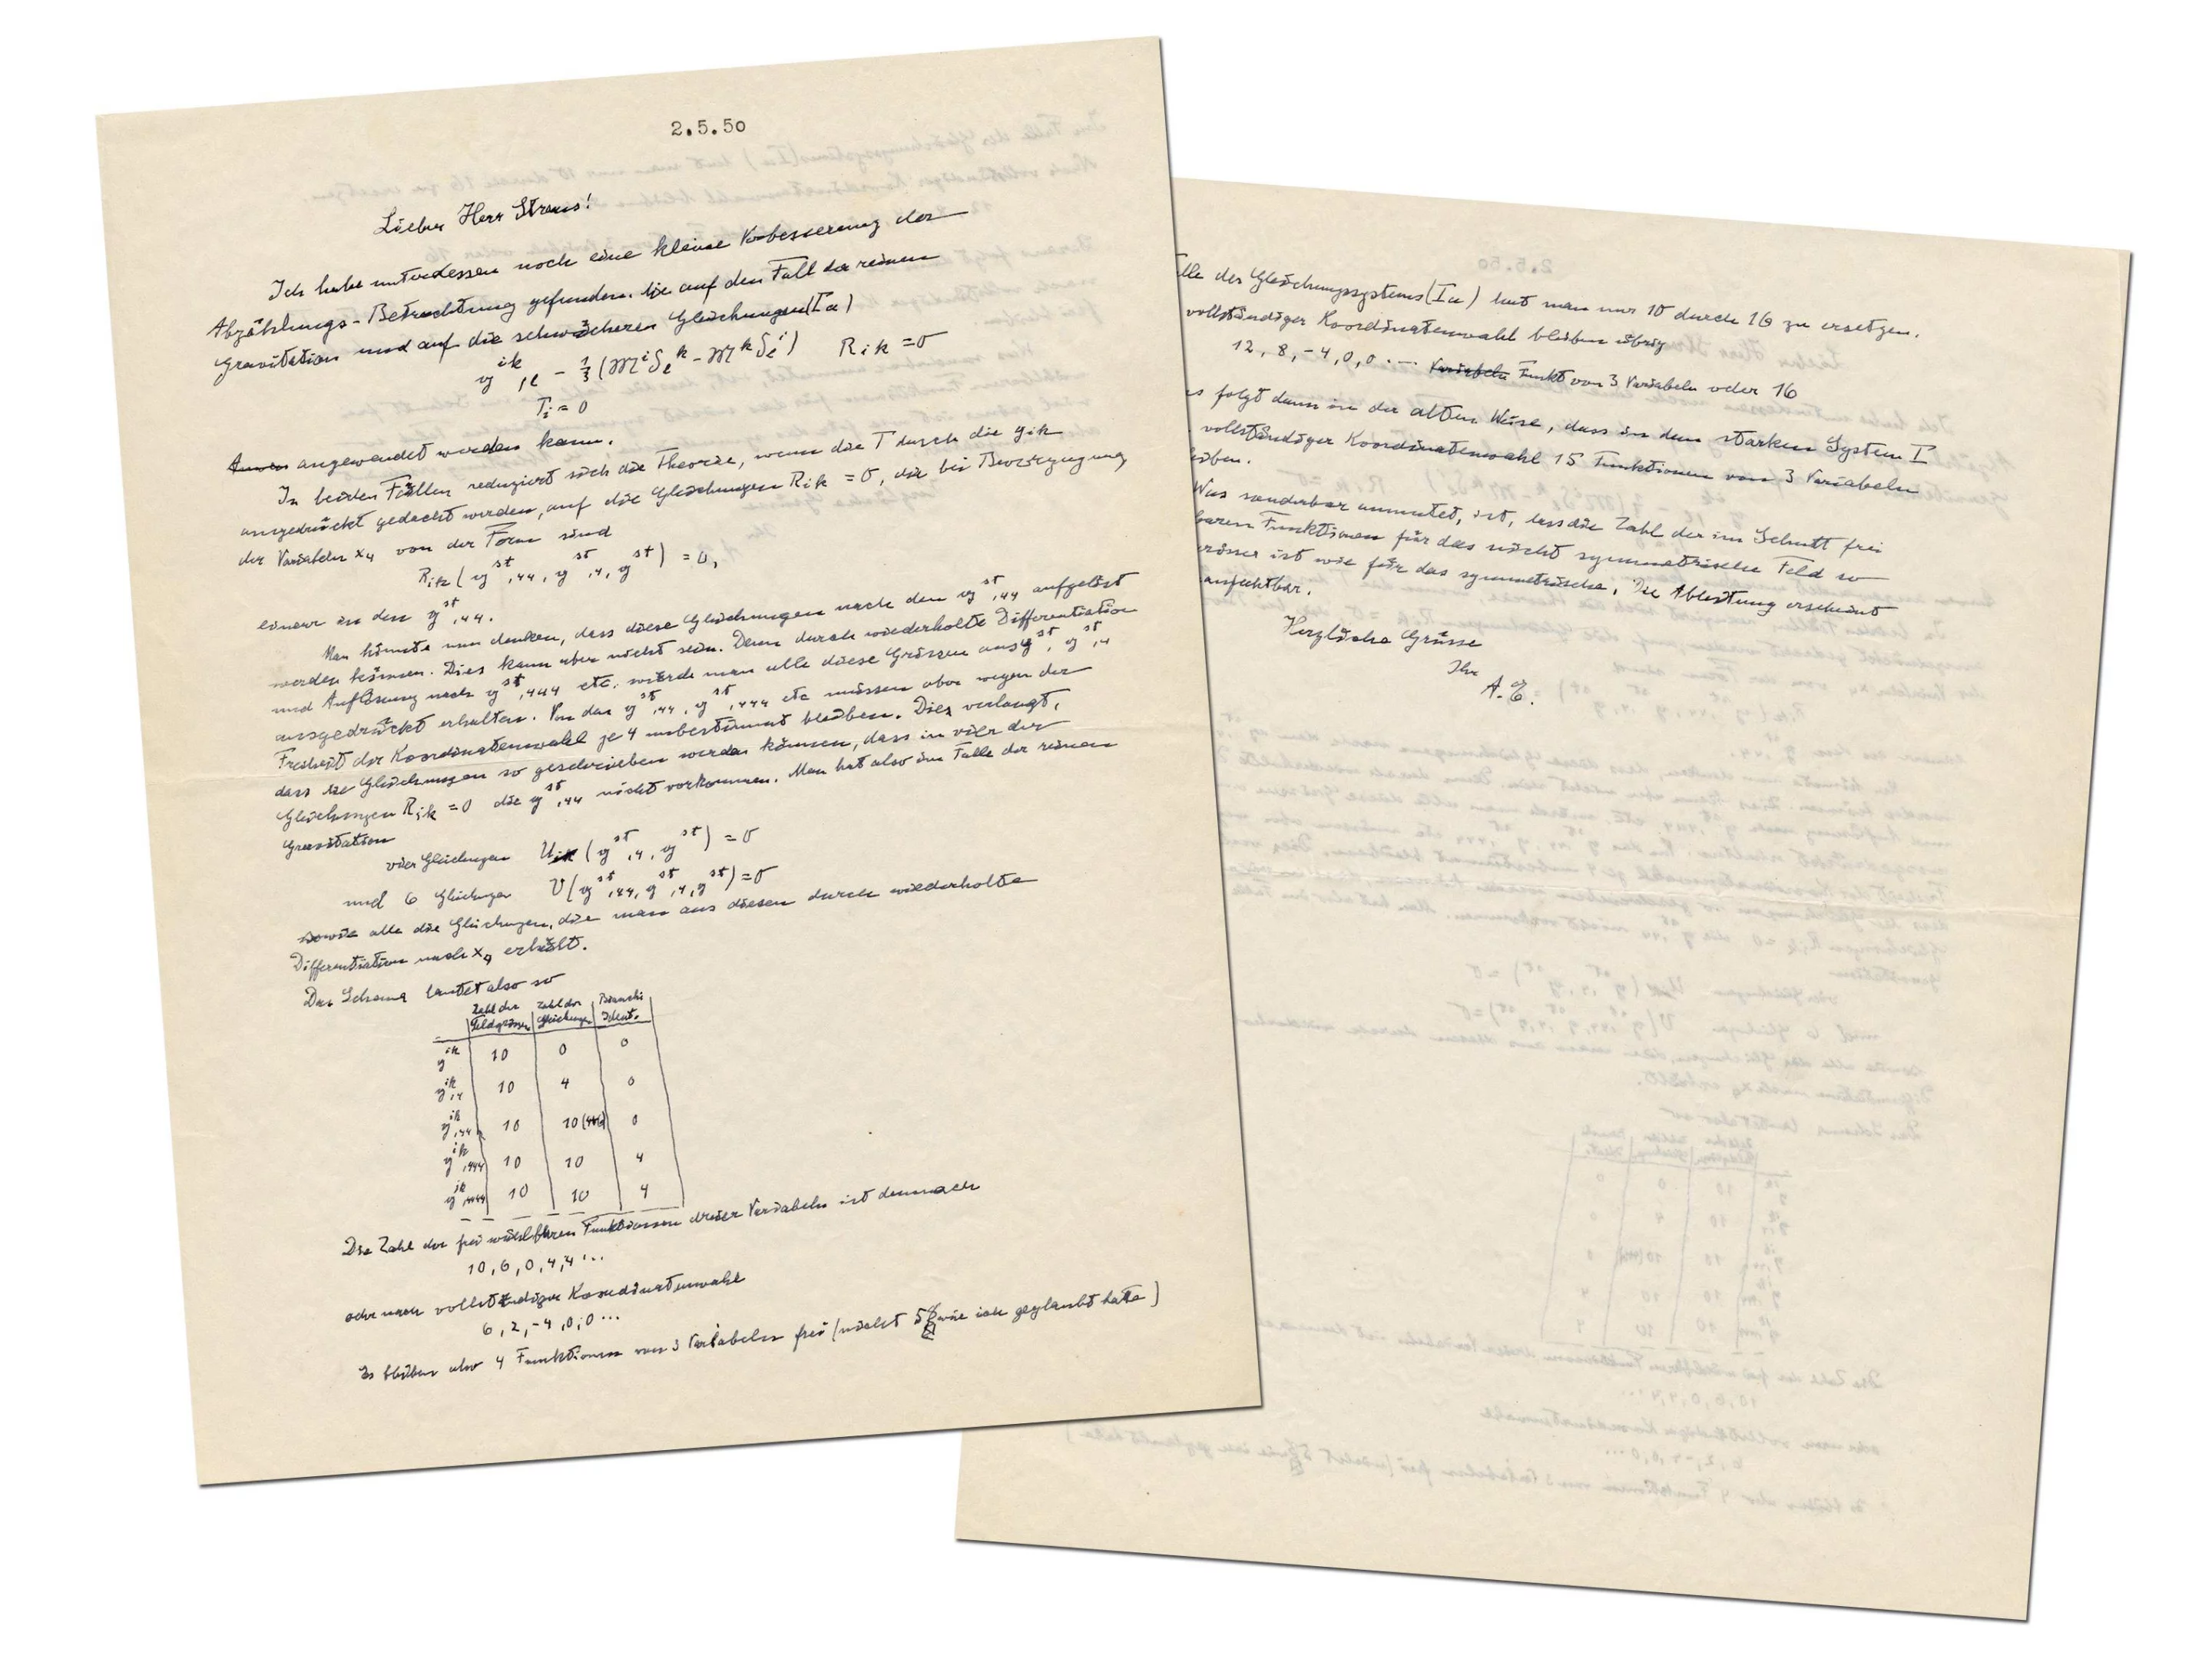 2.5.50
Lieber Herr Straus!
Ich habe unterdessen noch eine kleine Verbesserung der
Abzählungs-Betrachtung gefunden, die auf den Fall der reinen
Gravitation und auf die schwächeren Gleichungen (Ia)
𝔤^{ik}_{,l} - 1/3 (𝔐^i δ_l^k - 𝔐^k δ_l^i)   R_{ik} = 0
Γ_i = 0
angewendet werden kann.
In beiden Fällen reduziert sich die Theorie, wenn die Γ durch die g_{ik}
ausgedrückt gedacht werden, auf die Gleichungen R_{ik} = 0, die bei Bevorzugung
der Variabeln x_4 von der Form sind
R_{ik} (𝔤^{st}_{,44}, 𝔤^{st}_{,4}, 𝔤^{st}) = 0,
linear in den 𝔤^{st}_{,44}.
Man könnte nun denken, dass diese Gleichungen nach den 𝔤^{st}_{,44} aufgelöst
werden können. Dies kann aber nicht sein. Denn durch wiederholte Differentiation
und Auflösung nach 𝔤^{st}_{,444} etc. würde man alle diese Grössen aus 𝔤^{st}, 𝔤^{st}_{,4}
ausgedrückt erhalten. Von den 𝔤^{st}_{,44}, 𝔤^{st}_{,444} etc müssen aber wegen der
Freiheit der Koordinatenwahl je 4 unbestimmt bleiben. Dies verlangt,
dass die Gleichungen so geschrieben werden können, dass in vier der
Gleichungen R_{ik} = 0 die 𝔤^{st}_{,44} nicht vorkommen. Man hat also im Falle der reinen
Gravitation
vier Gleichungen U (𝔤^{st}_{,4}, 𝔤^{st}) = 0
und 6 Gleichungen V (𝔤^{st}_{,44}, 𝔤^{st}_{,4}, 𝔤^{st}) = 0
sowie alle die Gleichungen, die man aus diesen durch wiederholte
Differentiation nach x_4 erhält.
Das Schema lautet also so
Zahl der Feldgrössen | Zahl der Gleichungen | Bianchi Ident.
𝔤^{ik} | 10 | 0 | 0
𝔤^{ik}_{,4} | 10 | 4 | 0
𝔤^{ik}_{,44} | 10 | 10 (4+6) | 0
𝔤^{ik}_{,444} | 10 | 10 | 4
𝔤^{ik}_{,4444} | 10 | 10 | 4
Die Zahl der frei wählbaren Funktionen dreier Variabeln ist demnach
10, 6, 0, 4, 4 ...
oder nach vollständiger Koordinatenwahl
6, 2, -4, 0, 0 ...
Es bleiben also 4 Funktionen von 3 Variabeln frei (nicht 5 wie ich geglaubt hatte)
lle des Gleichungssystems (Ia) hat man nur 10 durch 16 zu ersetzen.
vollständiger Koordinatenwahl bleiben übrig
12, 8, -4, 0, 0 . — Variabeln Funkt von 3 Variabeln oder 16
s folgt dann in der alten Weise, dass in dem starken System I
vollständiger Koordinatenwahl 15 Funktionen von 3 Variabeln
eiben.
Was sonderbar anmutet, ist, dass die Zahl der im Schnitt frei
baren Funktionen für das nicht symmetrische Feld so
rösser ist wie für das symmetrische. Die Ableitung erscheint
anfechtbar.
Herzliche Grüsse
Ihr
A. E.